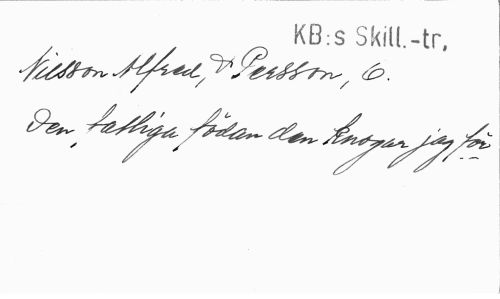 KB:s Skill.-tr.
Nilsson Alfred, & Persson, O.
Den fattiga födan den knogar jag för